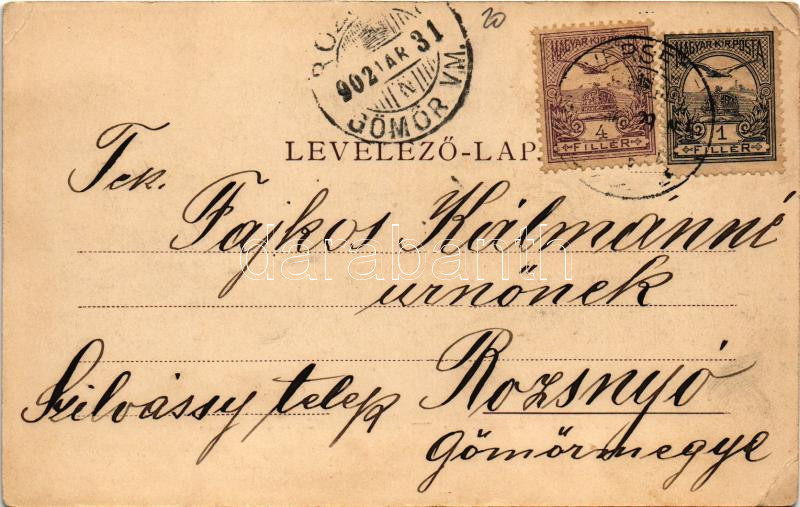 20
902 MAR 31
GÖMÖR VM.
MAGYAR KIR. POSTA
4
FILLÉR
MAGYAR KIR. POSTA
1
FILLÉR
LEVELEZŐ-LAP.
Tek.
Fajkos Kálmánné
urnőnek
Szilvássy telep Rozsnyó
Gömörmegye
darabanth